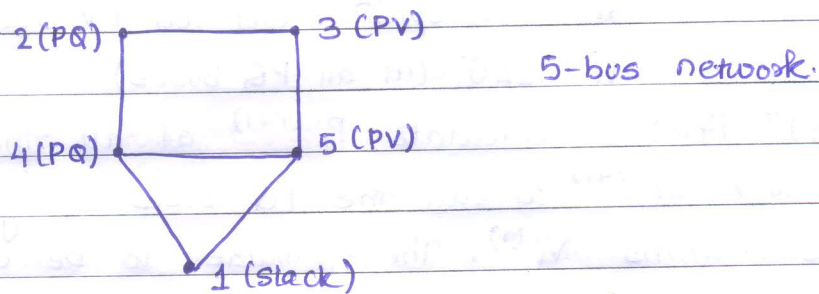 2(PQ) 3 (PV)
5-bus network.
4(PQ) 5 (PV)
1 (Slack)